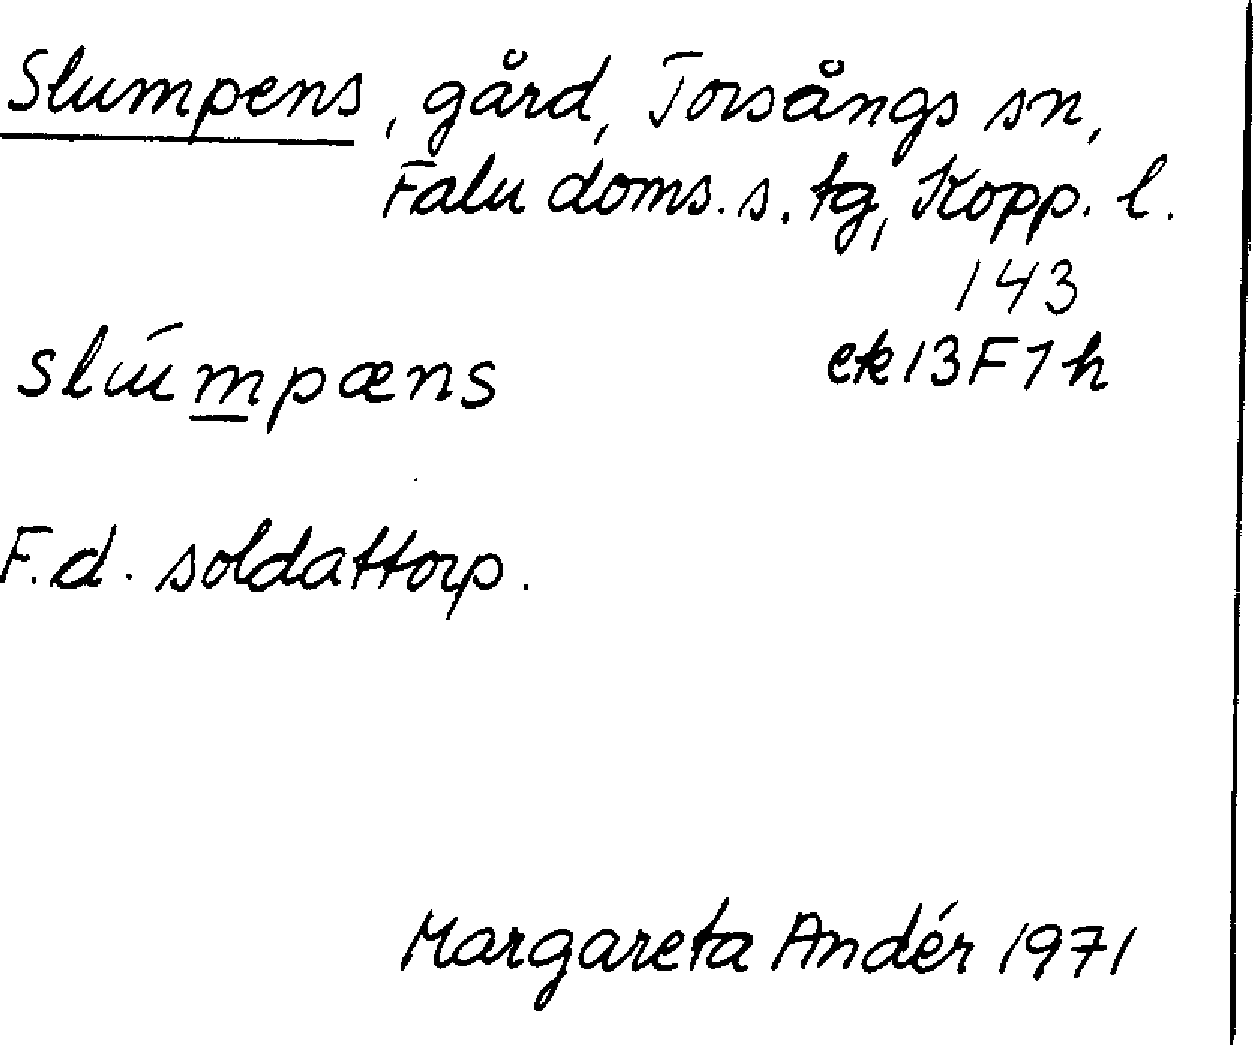 Slumpens, gård, Torsångs sn,
Falu doms. s. tg, Kopp. l.
143
slúmpæns
ek 13F7h
F.d. soldattorp.
Margareta Andér 1971